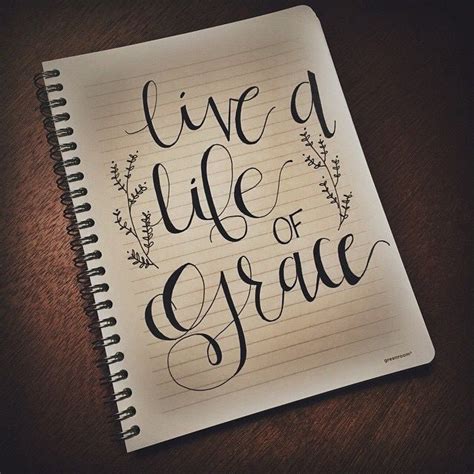 live a
life
OF
Grace
greenroom®